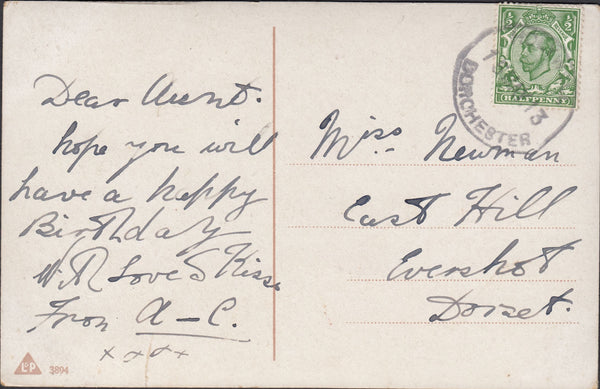 Dear Aunt.
hope you will
have a happy
Birthday
With Love & Kisses
From A-C.
x x x x
L&P 3894
½ ½
HALFPENNY
13
DORCHESTER
Miss Newman
East Hill
Evershot
Dorset.